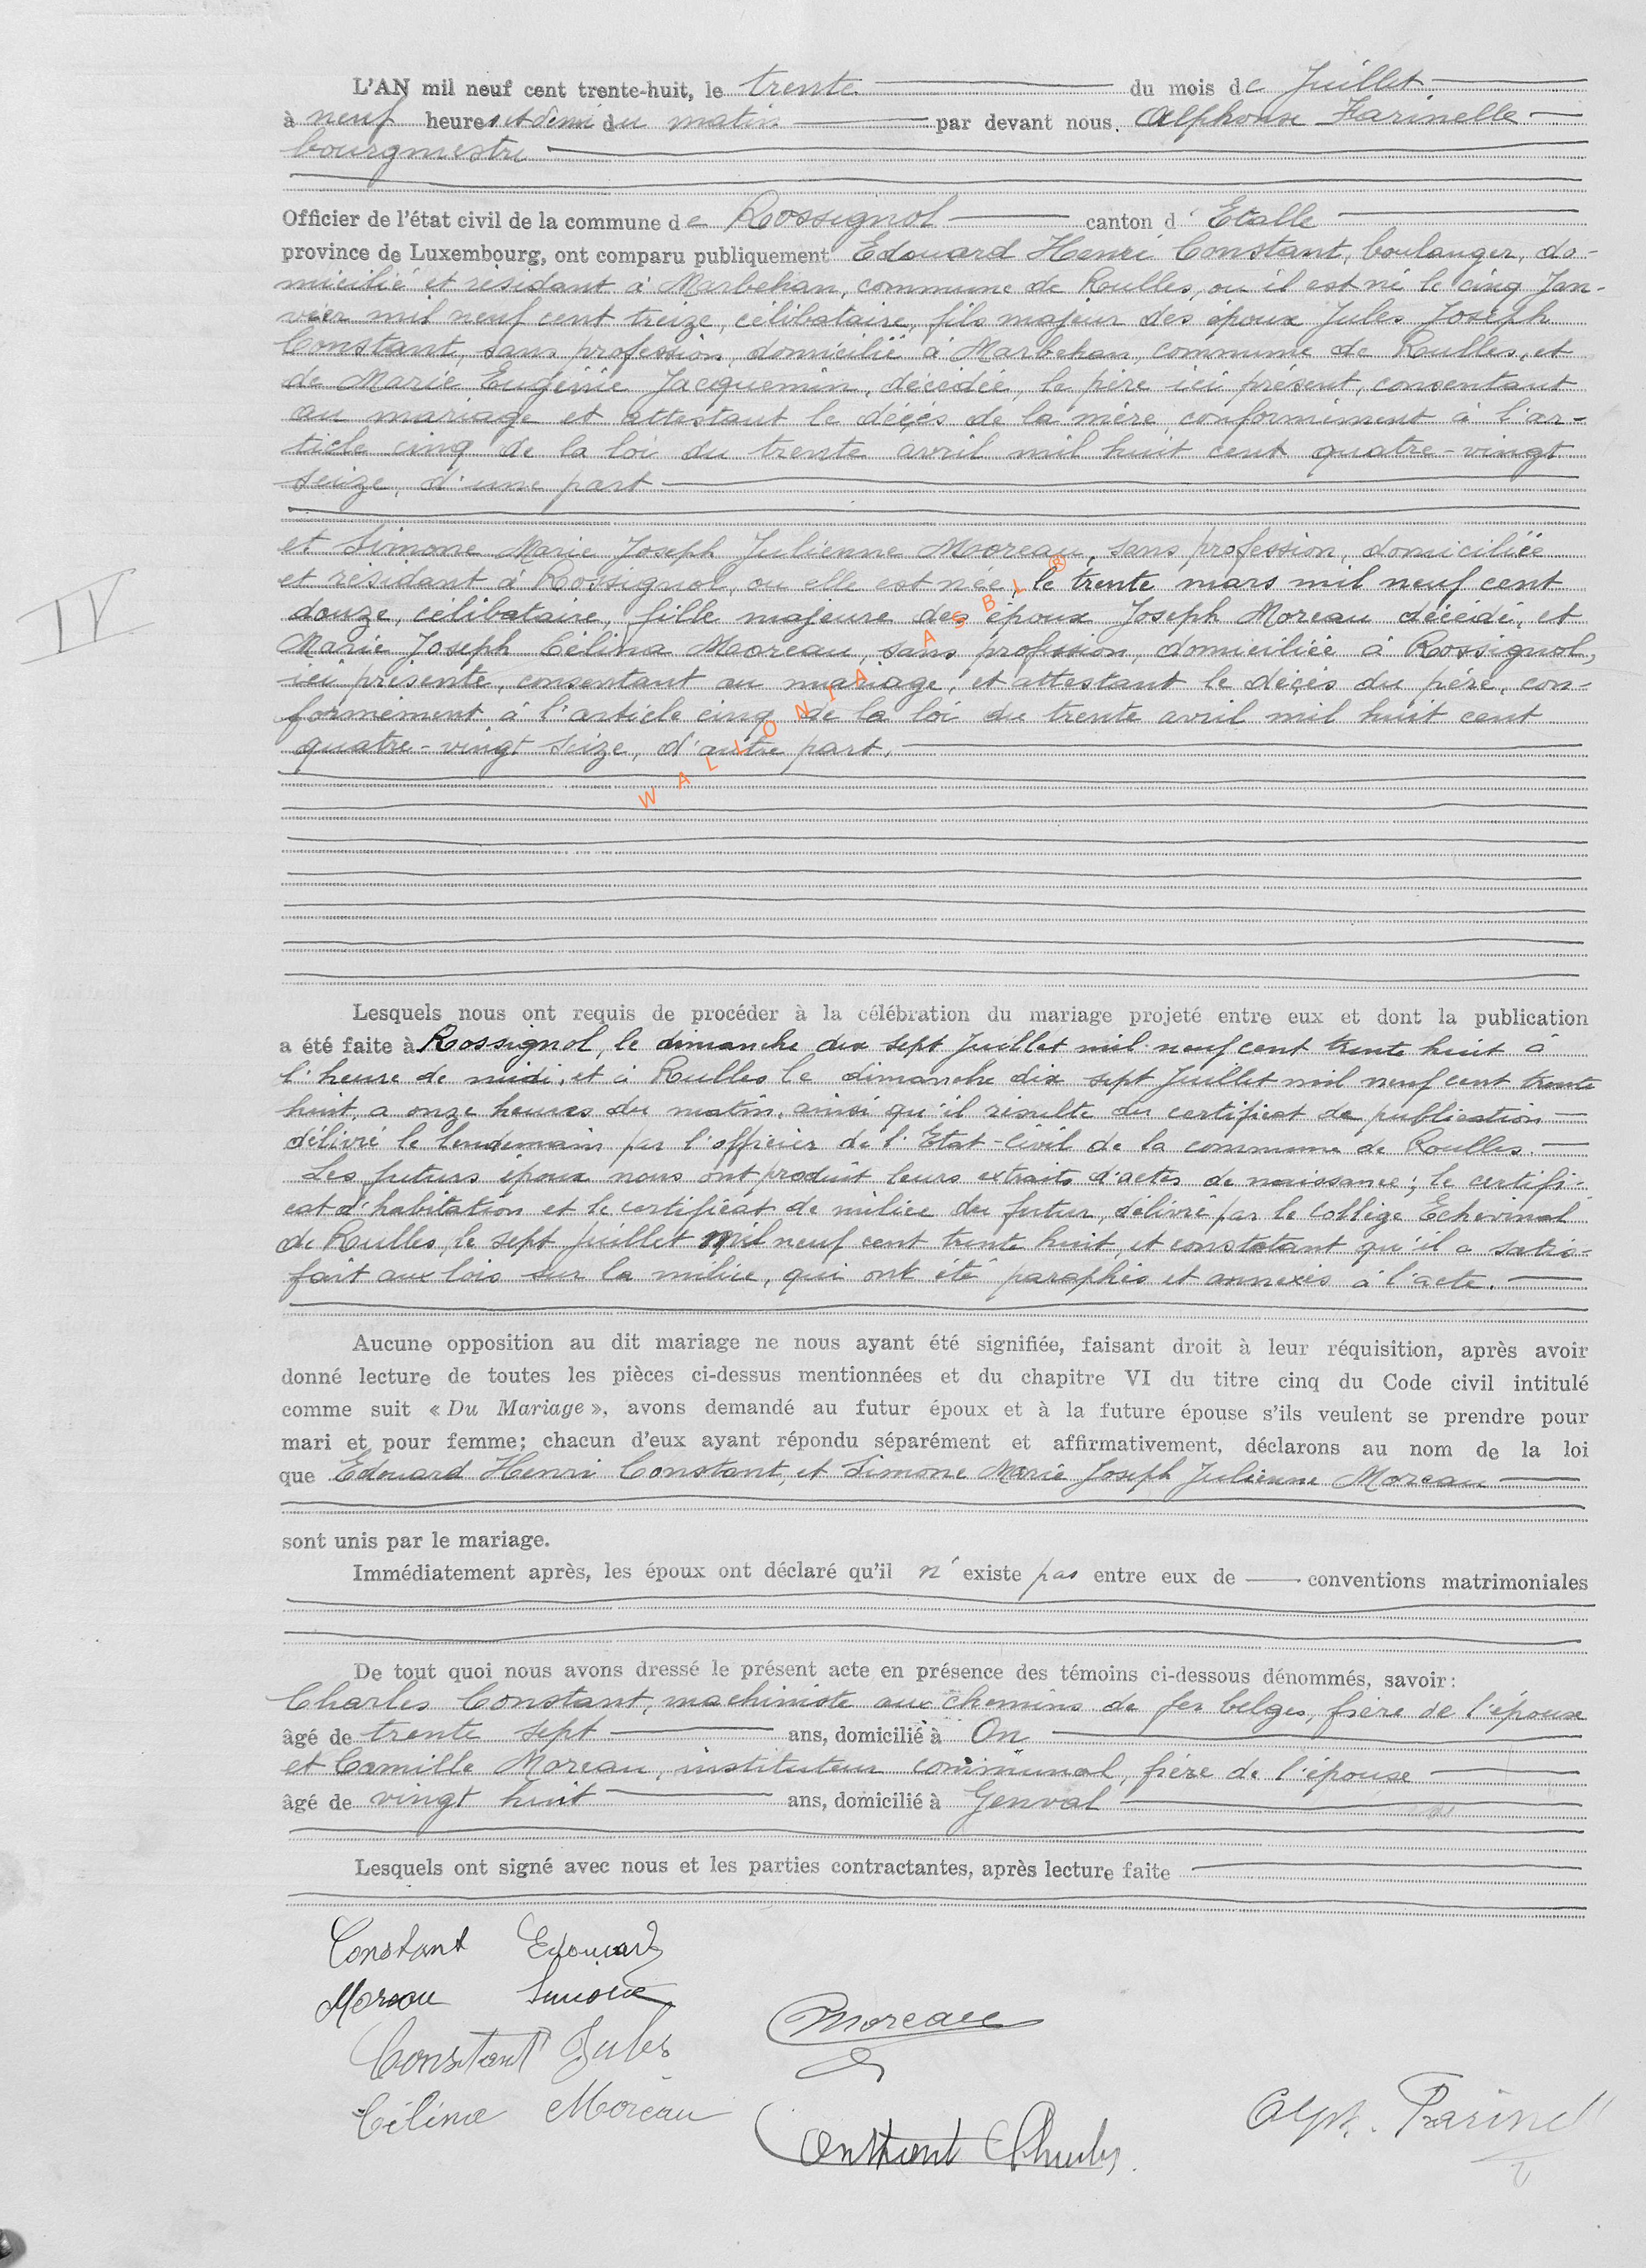 L'AN mil neuf cent trente-huit, le trente du mois de Juillet
à neuf heures et demi du matin par devant nous, Alphonse Farinelle
bourgmestre
Officier de l'état civil de la commune de Rossignol canton d'Etalle
province de Luxembourg, ont comparu publiquement Edouard Henri Constant, boulanger, do-
micilié et résidant à Marbehan, commune de Rulles, où il est né le cinq Jan-
vier mil neuf cent treize, célibataire, fils majeur des époux Jules Joseph
Constant, sans profession, domicilié à Marbehan, commune de Rulles, et
de Marie Eugénie Jacquemin, décédée, le père ici présent, consentant
au mariage et attestant le décès de la mère, conformément à l'ar-
ticle cinq de la loi du trente avril mil huit cent quatre-vingt
seize, d'une part
et Simone Marie Joseph Julienne Moreau, sans profession, domiciliée
et résidant à Rossignol, ou elle est née, le trente mars mil neuf cent
douze, célibataire, fille majeure des époux Joseph Moreau décédé, et
Marie Joseph Célina Moreau, sans profession, domiciliée à Rossignol,
ici présente, consentant au mariage, et attestant le décès du père, con-
formément à l'article cinq de la loi du trente avril mil huit cent
quatre-vingt seize, d'autre part.
IV
WALLONIA ASBL ®
Lesquels nous ont requis de procéder à la célébration du mariage projeté entre eux et dont la publication
a été faite à Rossignol, le dimanche dix sept Juillet mil neuf cent trente huit à
l'heure de midi, et à Rulles le dimanche dix sept Juillet mil neuf cent trente
huit, a onze heures du matin, ainsi qu'il résulte du certificat de publication
délivré le lendemain par l'officier de l'Etat-Civil de la commune de Rulles.
Les futurs époux nous ont produit leurs extraits d'actes de naissance; le certifi-
cat d'habitation et le certificat de milice du futur, délivré par le Collège Echevinal
de Rulles, le sept juillet mil neuf cent trente huit, et constatant qu'il a satis-
fait aux lois sur la milice, qui ont été paraphés et annexés à l'acte.
Aucune opposition au dit mariage ne nous ayant été signifiée, faisant droit à leur réquisition, après avoir
donné lecture de toutes les pièces ci-dessus mentionnées et du chapitre VI du titre cinq du Code civil intitulé
comme suit « Du Mariage », avons demandé au futur époux et à la future épouse s'ils veulent se prendre pour
mari et pour femme; chacun d'eux ayant répondu séparément et affirmativement, déclarons au nom de la loi
que Edouard Henri Constant, et Simone Marie Joseph Julienne Moreau
sont unis par le mariage.
Immédiatement après, les époux ont déclaré qu'il n'existe pas entre eux de conventions matrimoniales
De tout quoi nous avons dressé le présent acte en présence des témoins ci-dessous dénommés, savoir:
Charles Constant, machiniste aux chemins de fer belges, frère de l'épouse
âgé de trente sept ans, domicilié à On
et Camille Moreau, instituteur communal, frère de l'épouse
âgé de vingt huit ans, domicilié à Genval
Lesquels ont signé avec nous et les parties contractantes, après lecture faite
Constant Edouard
Moreau Simone
Constant Jules
Célina Moreau
CMoreau
Constant Charles
Alph. Farinelle